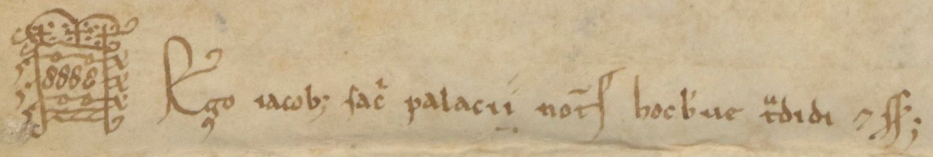 Ego iacob; sac̄ palacii not̄ hoc b̄ue t̄didi ⁊ ſſ;